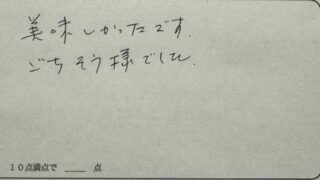 美味しかったです.
ごちそう様でした.
10点満点で ___ 点